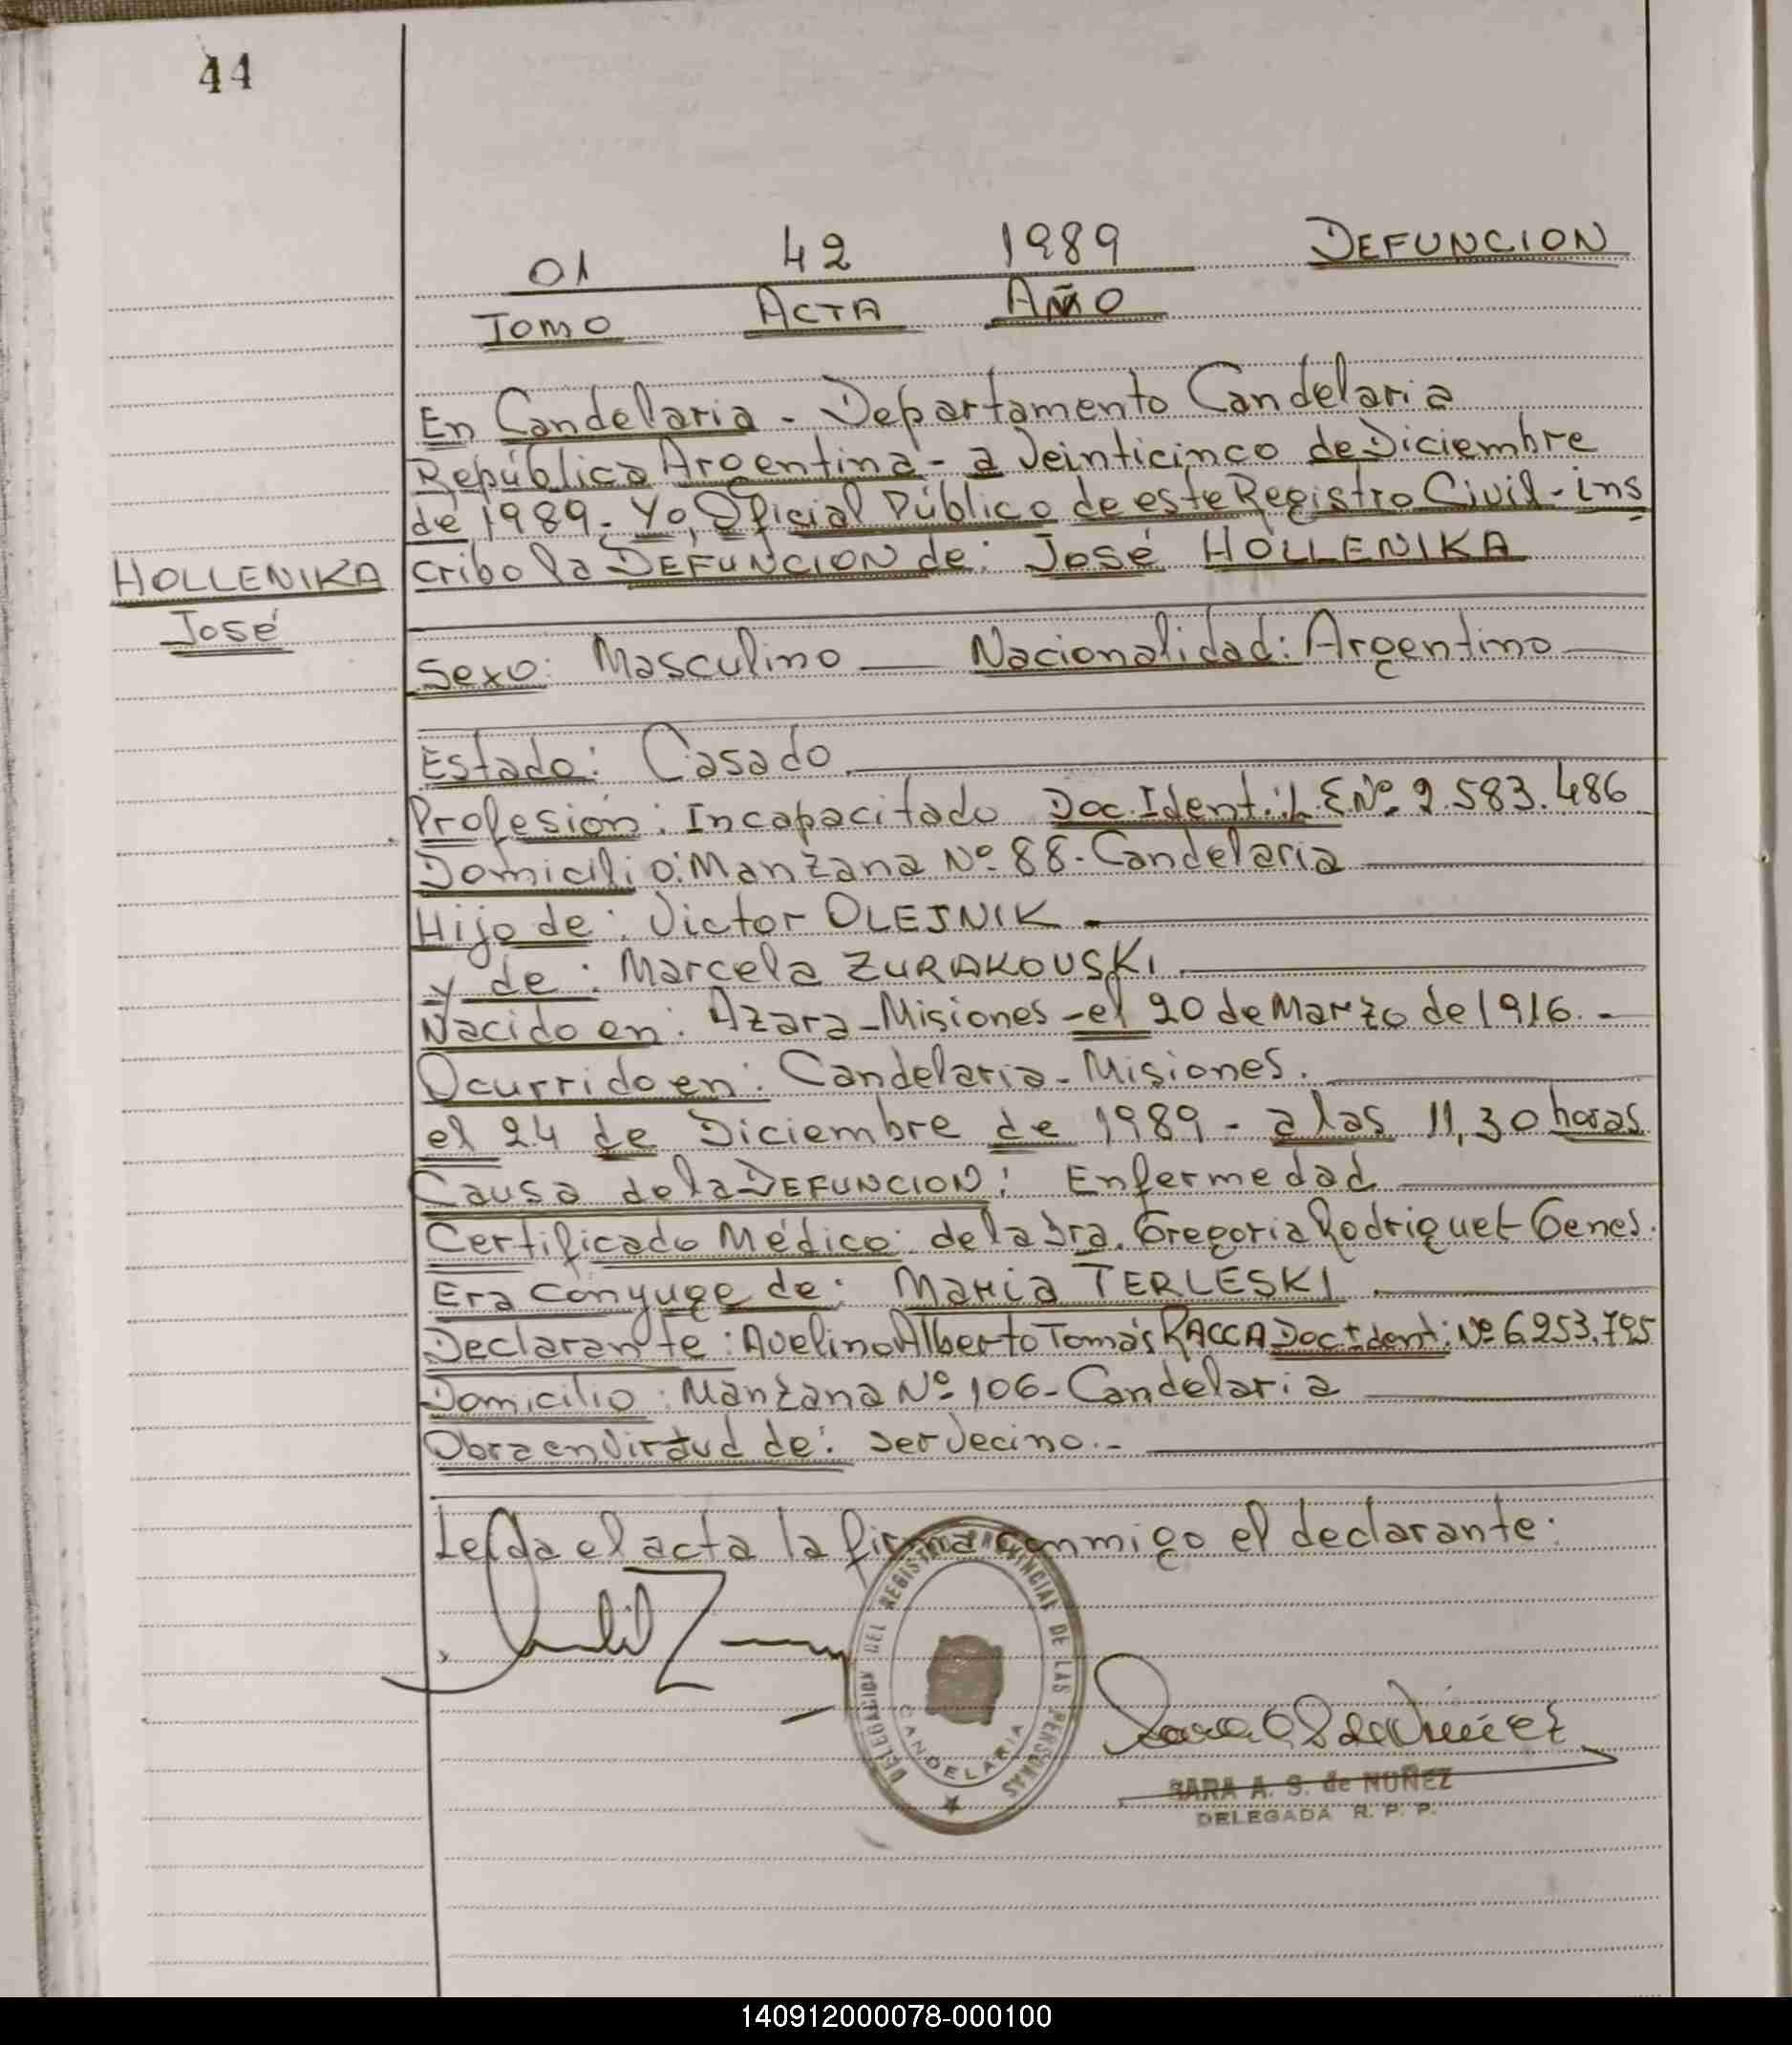 44
01 42 1989 DEFUNCION
TOMO ACTA AÑO
En Candelaria - Departamento Candelaria
República Argentina - a Veinticinco de Diciembre
de 1989. Yo, Oficial Público de este Registro Civil - ins
HOLLENIKA cribo la DEFUNCION de: José HOLLENIKA
José
Sexo: Masculino Nacionalidad: Argentino
Estado: Casado.
Profesión: Incapacitado Doc. Ident.: L.E Nº 2.583.486
Domicilio: Manzana Nº 88 - Candelaria
Hijo de: Victor OLEJNIK.
y de: Marcela ZURAKOUSKI.
Nacido en: Azara - Misiones - el 20 de Marzo de 1916. -
Ocurrido en: Candelaria - Misiones.
el 24 de Diciembre de 1989 - a las 11,30 horas
Causa de la DEFUNCION: Enfermedad
Certificado Médico: de la Dra. Gregoria Rodriguet Genes.
Era Cónyuge de: Maria TERLESKI.
Declarante: Avelino Alberto Tomás RACCA Doc Ident: Nº 6.253.795
Domicilio: Manzana Nº 106 - Candelaria
Obra en Virtud de: ser Vecino. -
Leída el acta la firma conmigo el declarante:
DELEGACION DEL REGISTRO PROVINCIAL DE LAS PERSONAS
CANDELARIA
SARA A. S. de NUÑEZ
DELEGADA R. P. P.
140912000078-000100